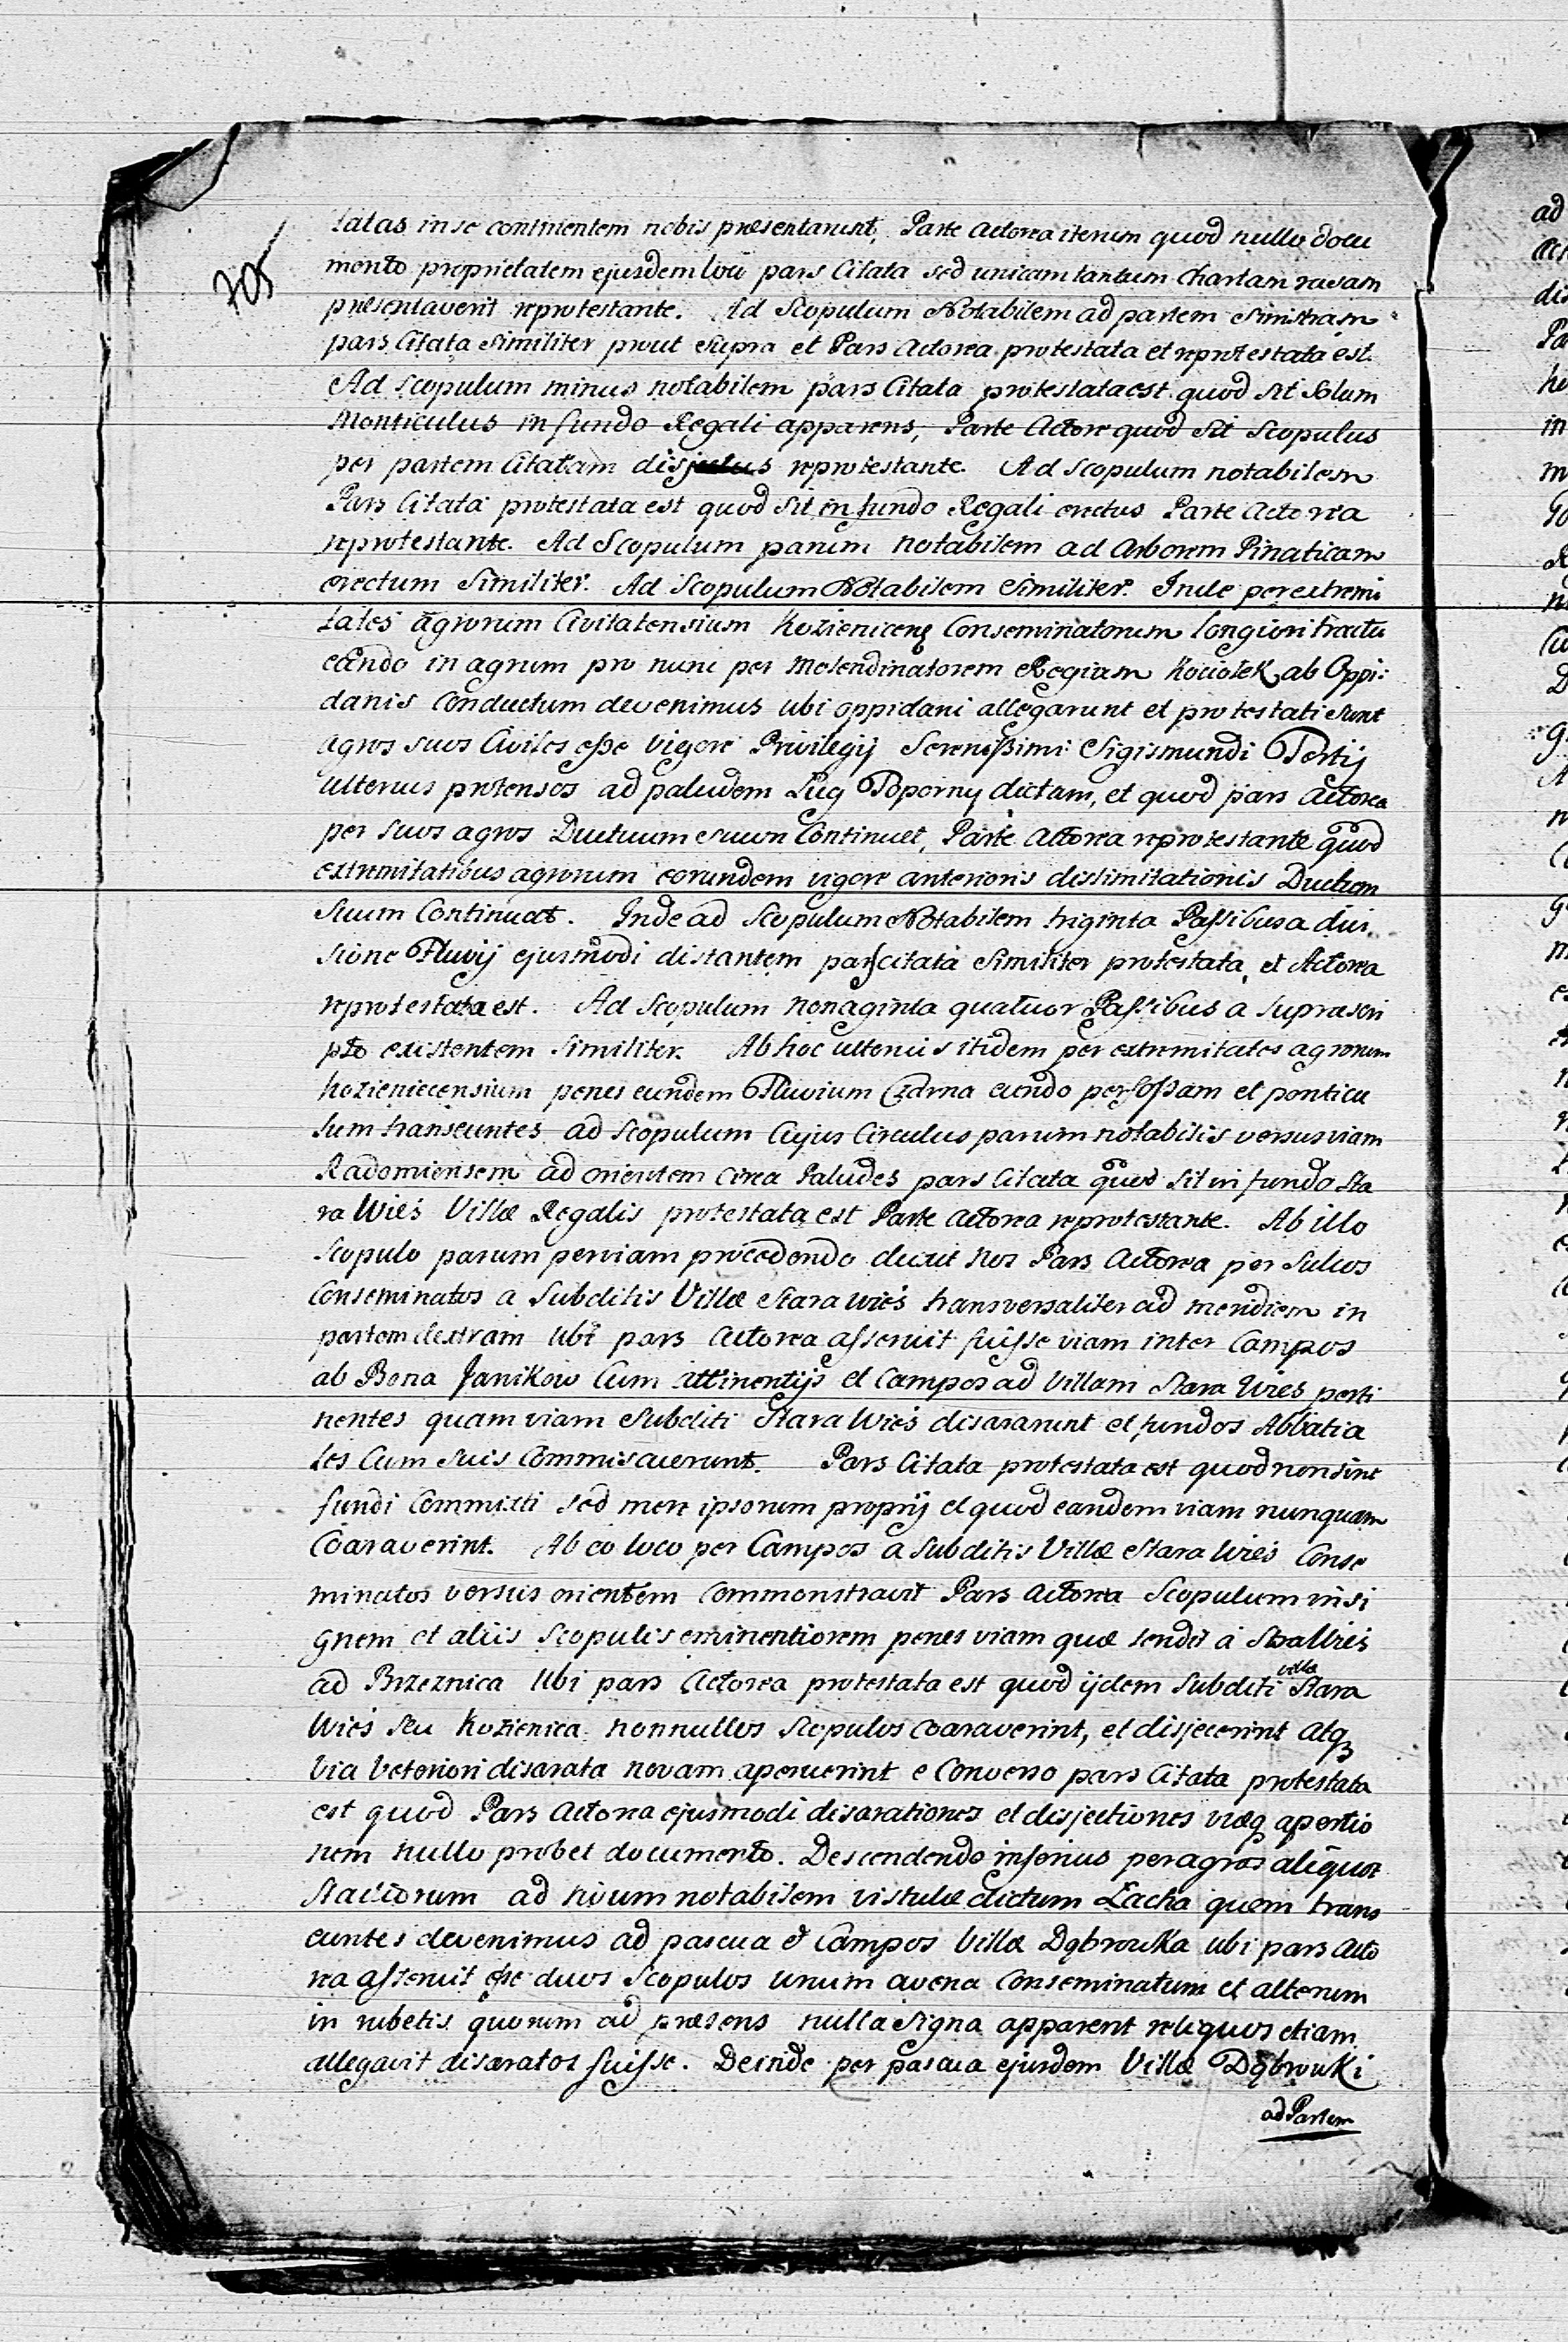 705
tatas in se continentem nobis præsentarunt, Parte Actorea iterum quod nullo docu
mento proprietatem ejusdem loci pars Citata sed unicam tantum Chartam rasam
præsentaverit reprotestante. Ad Scopulum Notabilem ad partem Sinistram
pars Citata Similiter prout supra et Pars Actorea protestata et reprotestata est.
Ad scopulum minus notabilem pars Citata protestata est quod sit Solum
Monticulus in fundo Regali apparens, Parte Actore quod sit Scopulus
per partem Citatam disjectus reprotestante. Ad Scopulum notabilem
Pars Citata protestata est quod sit in fundo Regali erectus Parte Actorea
reprotestante. Ad Scopulum parum notabilem ad Arborem Pinaticam
erectum Similiter. Ad Scopulum Notabilem Similiter. Inde per extremi
tates agrorum Civitatensium Kozienicens Conseminatorum longiori tractu
eundo in agrum pro nunc per Molendinatorem Regium Kociolek ab Oppi:
danis Conductum devenimus ubi oppidani allegarunt et protestati sunt
agros suos Civiles esse vigore Privilegij Serenissimi Sigismundi Tertij
ulterius protensos ad paludem Lug Toporny dictam, et quod pars Actorea
per suos agros Ductuum suum Continuet, Parte Actorea reprotestante quod
extremitatibus agrorum eorundem vigore anterioris dislimitationis Ductum
Suum Continuat. Inde ad Scopulum Notabilem triginta Passibus a divi
sione Fluvij ejusmodi distantem pars citata Similiter protestata, et Actorea
reprotestata est. Ad Scopulum nonaginta quatuor Passibus a suprascri
pto existentem Similiter. Ab hoc ulterius itidem per extremitates agrorum
Kozieniecensium penes eundem Fluvium Czarna eundo per fossam et ponticu
lum transeuntes ad Scopulum Cujus Circulus parum notabilis versus viam
Radomiensem ad orientem circa Paludes pars Citata quod sit in fundo Sta
ra Wieś Villæ Regalis protestata est Parte Actorea reprotestante. Ab illo
Scopulo parum per viam procedendo duxit nos Pars Actorea per Sulcos
Conseminatos a Subditis Villæ Stara Wieś transversaliter ad meridiem in
partem dextram ubi pars Actorea asseruit fuisse viam inter Campos
ab Bona Janikow Cum attinentijs et Campos ad Villam Stara Wieś perti
nentes quam viam Subditi Stara Wieś disararunt et fundos Abbatia
les Cum Suis Commiscuerunt. Pars Citata protestata est quod non sint
fundi Commixti sed mere ipsorum proprij et quod eandem viam nunquam
Coaraverint. Ab eo loco per Campos a Subditis Villæ Stara Wieś Conse
minatos versus orientem Commonstravit Pars Actorea Scopulum insi
gnem et aliis Scopulis eminentiorem penes viam quæ tendit a StaWieś
ad Brzeznica Ubi pars Actorea protestata est quod ijdem Subditi villæ Stara
Wieś seu Kozienica nonnullos Scopulos coaraverint, et disjecerint atq
via veteriori disarata novam aperuerint e Converso pars Citata protestata
est quod Pars Actorea ejusmodi disarationes et disjectiones viæq apertio
nem nullo probet documento. Descendendo inferius per agros aliquot
Stadiorum ad rivum notabilem vistulæ dictum Łacha quem trans
euntes devenimus ad pascua & Campos Villæ Dąbrowka ubi pars Acto
rea asseruit esse duos Scopulos unum avena Conseminatum et alterum
in rubetis quorum ad præsens nulla Signa apparent reliquos etiam
allegavit disaratos fuisse. Deinde per pascua ejusdem Villæ Dąbrowki
ad Partem